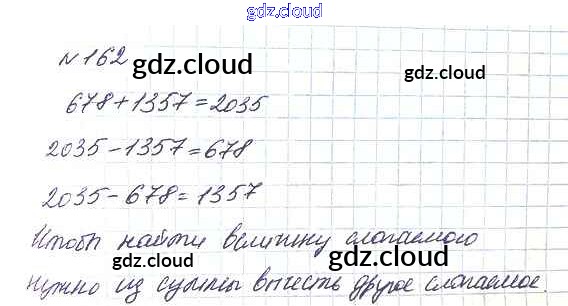 gdz.cloud
№162
gdz.cloud gdz.cloud
678+1357=2035
2035-1357=678
gdz.cloud gdz.cloud
2035-678=1357
Чтобы найти величину слагаемого
gdz.cloud gdz.cloud
нужно из суммы вычесть другое слагаемое.